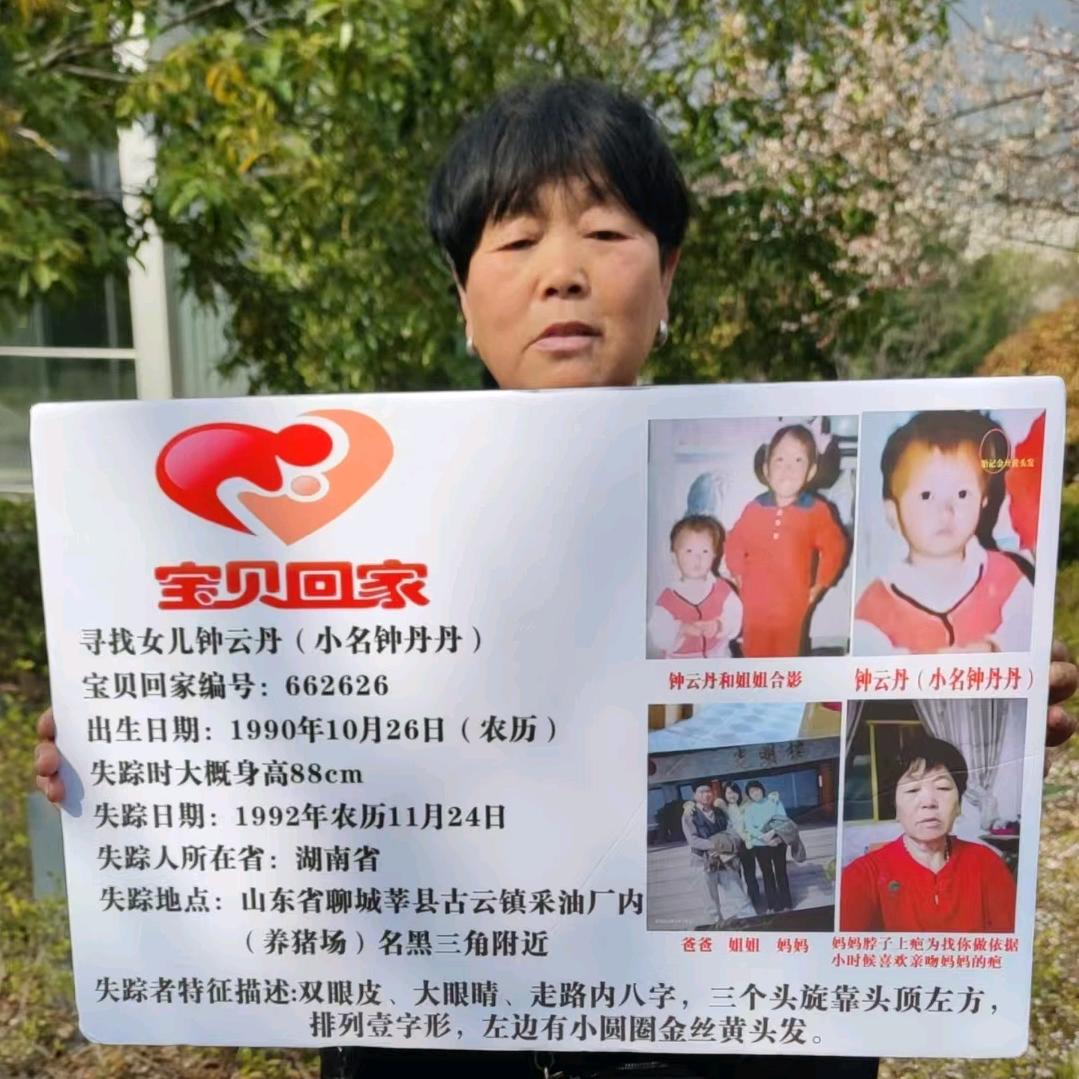 宝贝回家
寻找女儿钟云丹（小名钟丹丹）
宝贝回家编号：662626
出生日期：1990年10月26日（农历）
失踪时大概身高88cm
失踪日期：1992年农历11月24日
失踪人所在省：湖南省
失踪地点：山东省聊城莘县古云镇采油厂内
（养猪场）名黑三角附近
失踪者特征描述:双眼皮、大眼睛、走路内八字，三个头旋靠头顶左方，
排列壹字形，左边有小圆圈金丝黄头发。
钟云丹和姐姐合影
钟云丹（小名钟丹丹）
爸爸 姐姐 妈妈
妈妈脖子上疤为找你做依据
小时候喜欢亲吻妈妈的疤